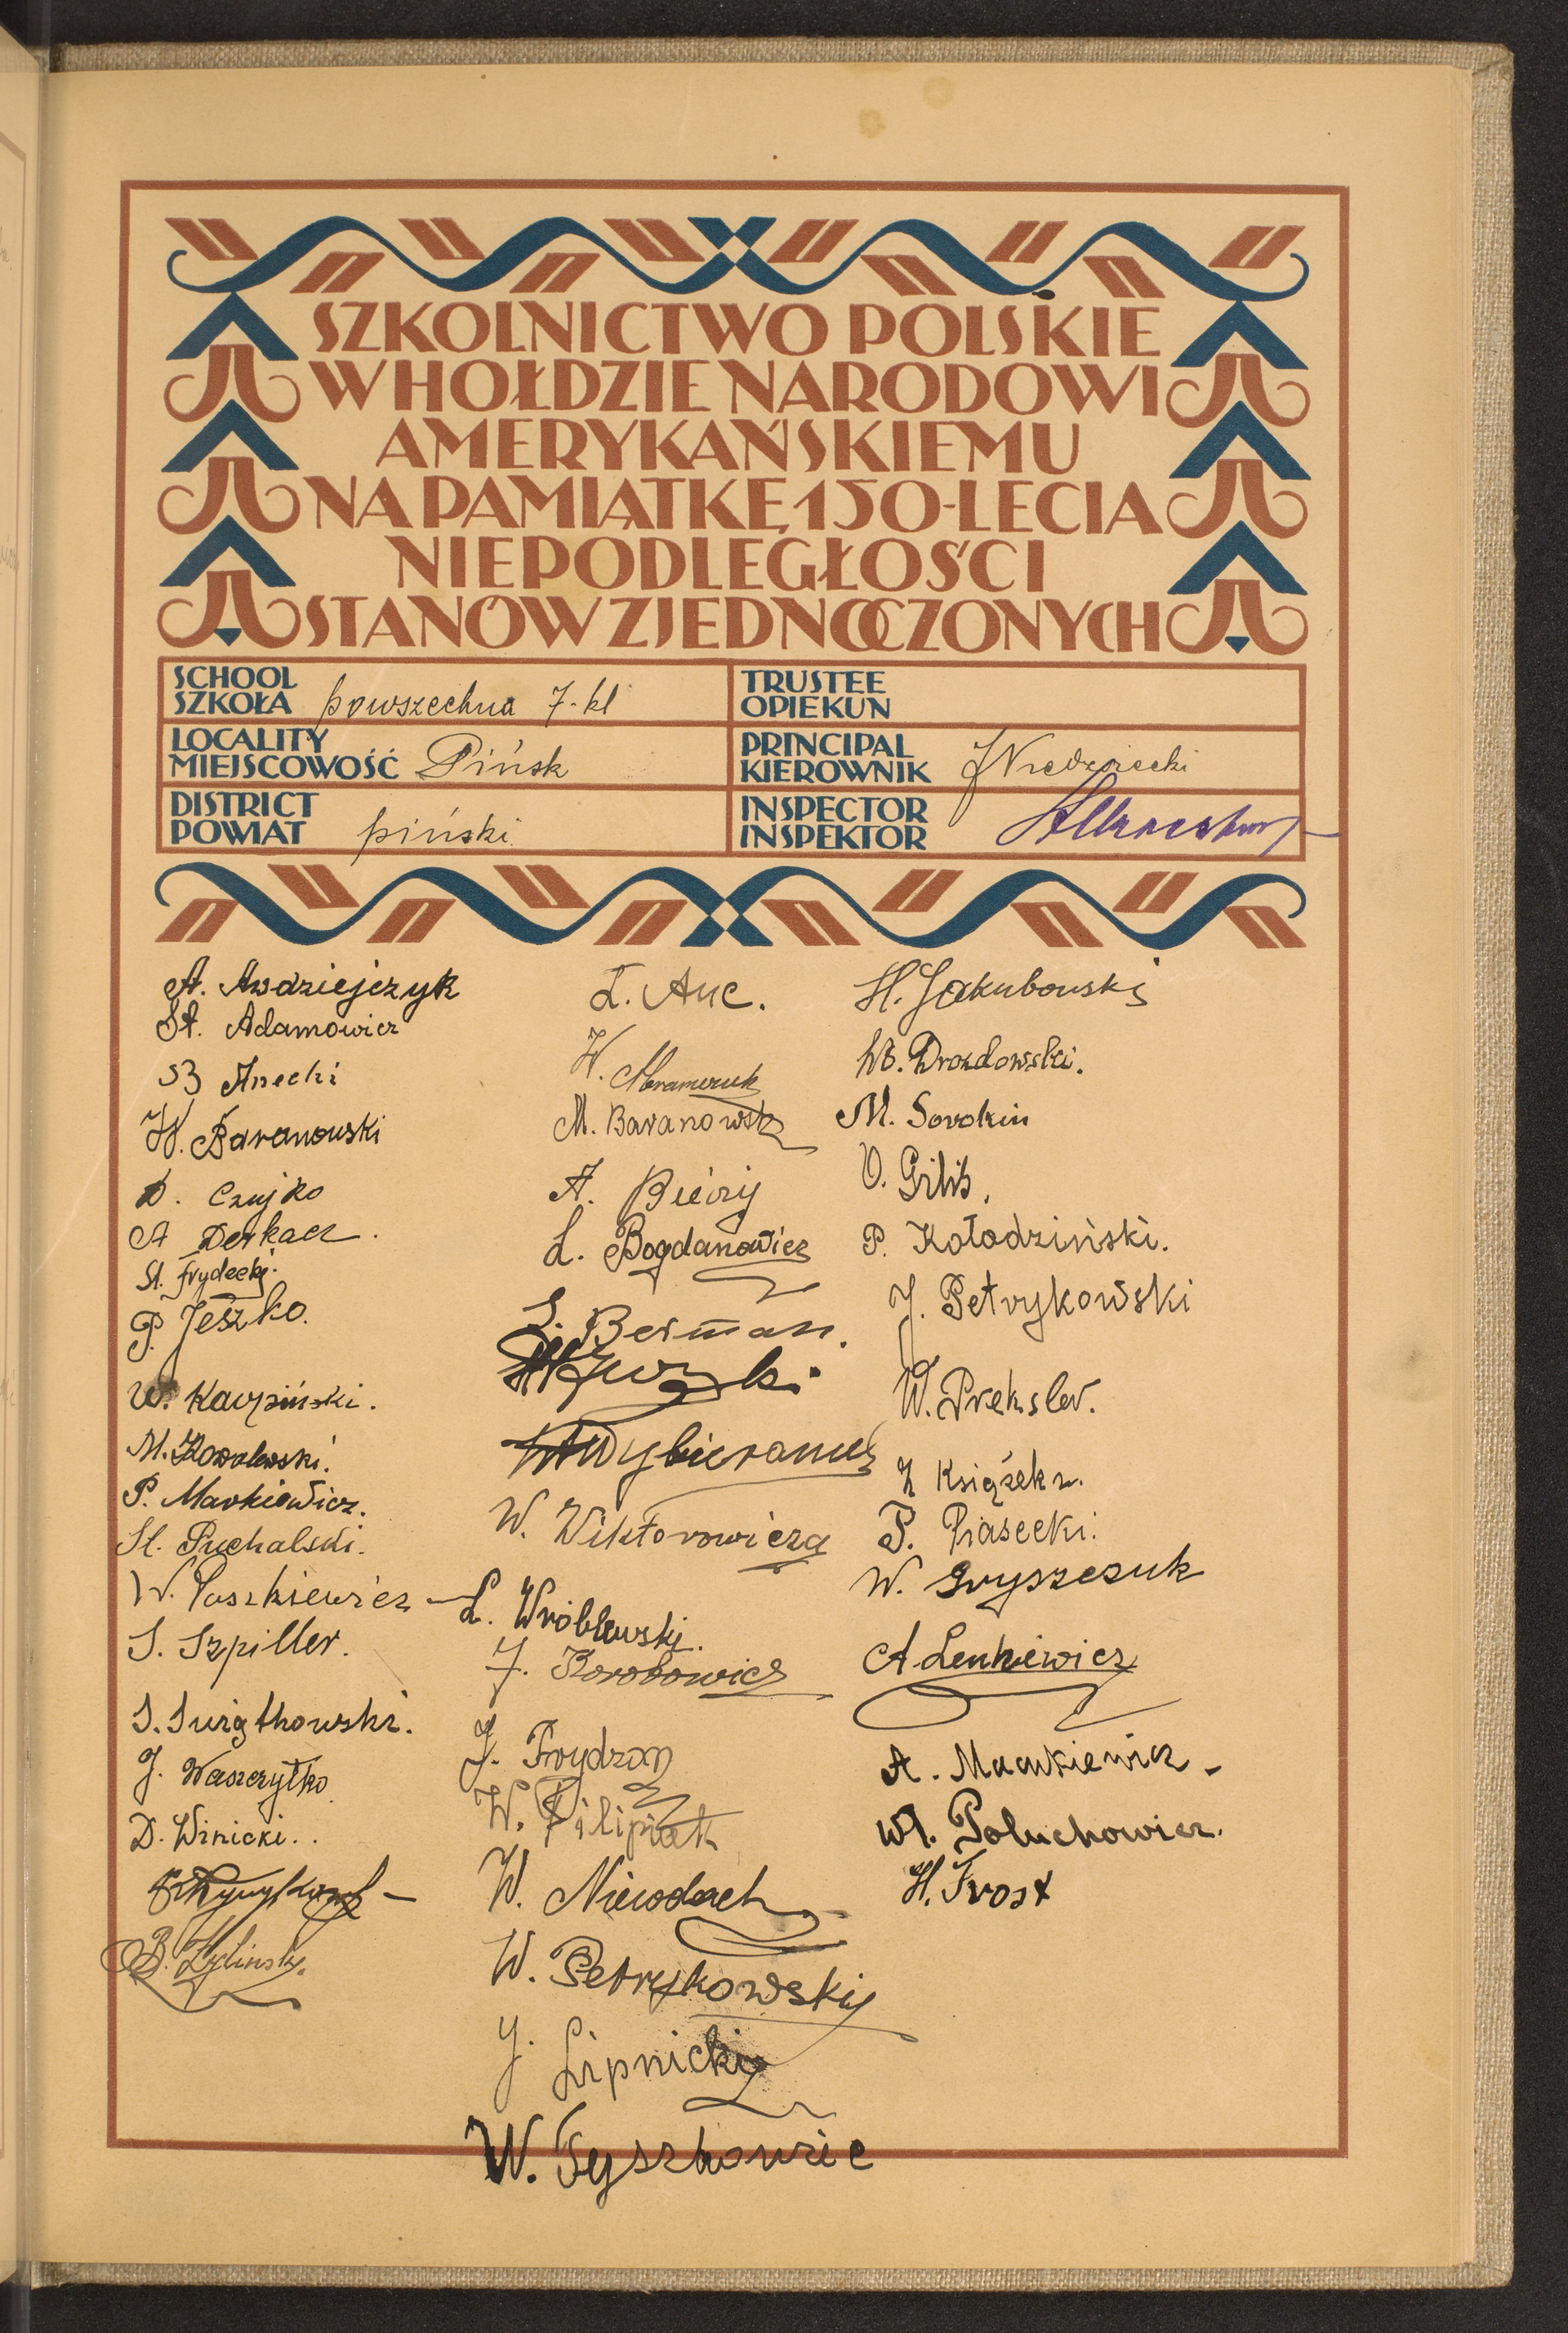 SZKOLNICTWO POLSKIE
W HOŁDZIE NARODOWI
AMERYKAŃSKIEMU
NA PAMIĄTKĘ 150-LECIA
NIEPODLEGŁOŚCI
STANÓW ZJEDNOCZONYCH
SCHOOL
SZKOŁA powszechna 7-kl
TRUSTEE
OPIEKUN
LOCALITY
MIEJSCOWOŚĆ Pińsk
PRINCIPAL
KIEROWNIK
DISTRICT
POWIAT piński
INSPECTOR
INSPEKTOR
A. Andziejczyk
St. Adamowicz
B Anecki
W. Baranowski
D. Czujko
A Derkacz.
St. Frydecki.
P. Jeszko.
W. Karpiński.
M. Kowalewski.
P. Markiewicz.
St. Puchalski.
W. Paszkiewicz
S. Szpiller.
S. Świątkowski.
J. Waszczyłko
D. Winicki..
B. Żylinski.
Ł. Auc.
W. Abramczuk
M. Baranowski
A.
L. Bogdanowicz
S. Berman.
W. Wiktorowicz
L. Wróblewski.
J. Borobowicz
J. Frydzon
W. Filipiak
W. Niewodach
W. Petrykowski
J. Lipnicki
W. Tyszkowic
H. Jakubowski
Wł. Drozdowski.
M. Sorokin
O.
P. Kołodziński.
J. Petrykowski
W. Preksler.
P. Piasecki.
W. Gryszczuk
A. Lenkiewicz
A. Mackiewicz
Wł. Poluchowicz.
H. Frost